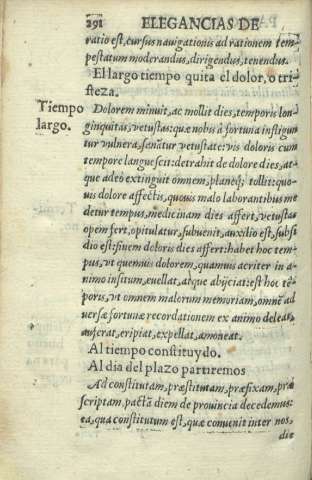 291 ELEGANCIAS DE
ratio est, cursus nauigationis ad rationem tem-
pestatum moderandus, dirigendus, tenendus.
El largo tiempo quita el dolor, o tri-
steza.
Tiempo largo.
Dolorem minuit, ac mollit dies, temporis lon-
ginquitas, vetustas: quæ nobis à fortuna instigun
tur vulnera, sanãtur vetustate: vis doloris cum
tempore languescit: detrahit de dolore dies, at-
que adeò extinguit omnem, planeq; tollit: quo-
uis dolore affectis, quouis malo laborantibus me
detur tempus, medicinam dies affert, vetustas
opem fert, opitulatur, subuenit, auxilio est, subsi
dio est: finem doloris dies affert: habet hoc tem-
pus, vt quemuis dolorem, quamuis acriter in a-
nimo insitum, euellat, atque abijciat: est hoc tẽ-
poris, vt omnem malorum memoriam, omnẽ ad
uersæ fortunæ recordationem ex animo deleat,
auferat, eripiat, expellat, amoueat.
Al tiempo constituydo.
Al dia del plazo partiremos
Ad constitutam, præstitutam, præfixam, præ
scriptam, pactã diem de prouincia decedemus:
ea, qua constitutum est, quæ conuenit inter nos,
die